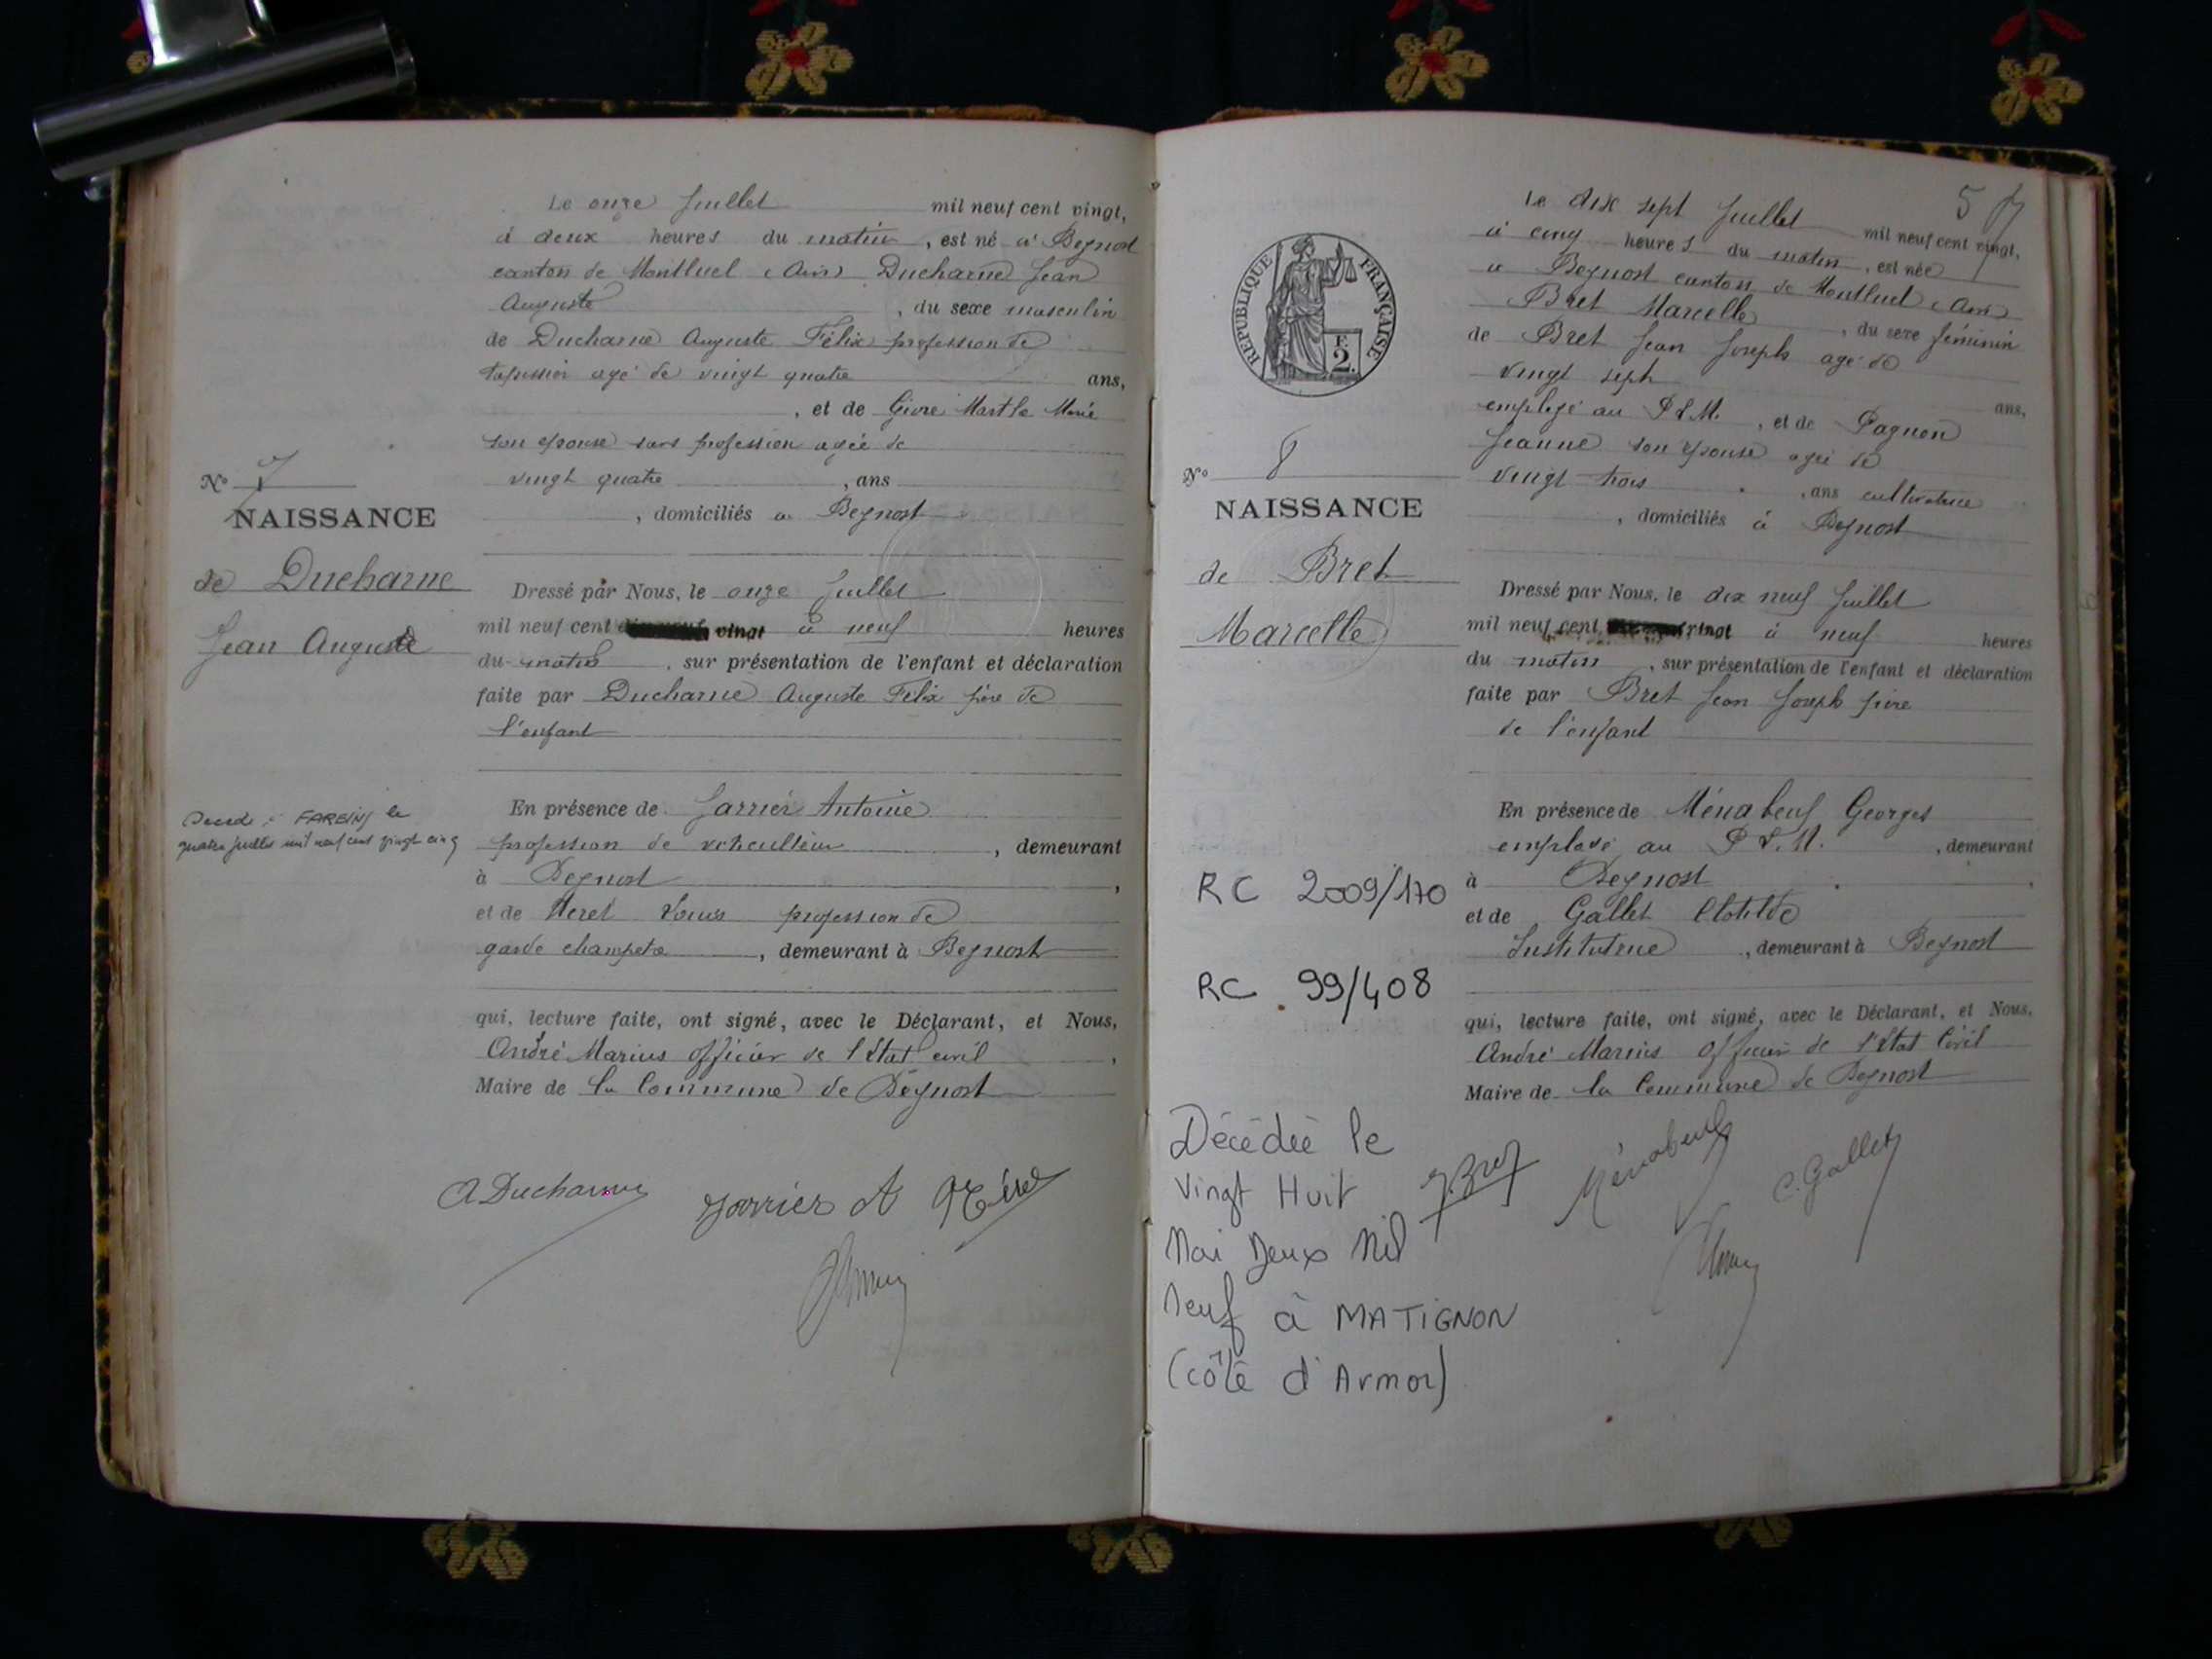 Le onze Juillet mil neuf cent vingt,
à deux heures du matin, est né à Beynost
canton de Montluel (Ain) Ducharne Jean
Auguste, du sexe masculin
de Ducharne Auguste Félix profession de
tapissier agé de vingt quatre ans,
, et de Givre Marthe Marie
son epouse sans profession agée de
vingt quatre, ans
, domiciliés à Beynost
N° 7
NAISSANCE
de Ducharne
Jean Auguste
Dressé par Nous, le onze Juillet
mil neuf cent vingt à neuf heures
du matin, sur présentation de l'enfant et déclaration
faite par Ducharne Auguste Félix père de
l'enfant
Décédé à FAREINS le
quatre juillet mil neuf cent vingt cinq
En présence de Jarrier Antoine
profession de viticulteur, demeurant
à Beynost,
et de Louis profession de
garde champetre, demeurant à Beynost
qui, lecture faite, ont signé, avec le Déclarant, et Nous,
André Marius officier de l'état civil,
Maire de la Commune de Beynost
A Ducharne Jarrier A
5
Le dix sept Juillet mil neuf cent vingt,
à cinq heures du matin, est née
à Beynost canton de Montluel (Ain)
Bret Marcelle, du sexe féminin
de Bret Jean Joseph agé de
vingt sept ans,
employé au P.L.M., et de Pagnon
Jeanne son epouse agée de
vingt trois, ans cultivatrice
, domiciliés à Beynost
REPUBLIQUE FRANÇAISE
F.
2.
N° 8
NAISSANCE
de Bret
Marcelle
Dressé par Nous, le dix neuf Juillet
mil neuf cent vingt à neuf heures
du matin, sur présentation de l'enfant et déclaration
faite par Bret Jean Joseph père
de l'enfant
En présence de Ménabeuf Georges
employé au P.L.M., demeurant
à Beynost,
et de Gallet Clotilde
Institutrice, demeurant à Beynost
qui, lecture faite, ont signé, avec le Déclarant, et Nous,
André Marius officier de l'Etat Civil
Maire de la Commune de Beynost
RC 2009/170
RC 99/408
Décédée le
Vingt Huit
Mai Deux Mil
Neuf à MATIGNON
(côte d'Armor)
J. Bret Ménabeuf C. Gallet